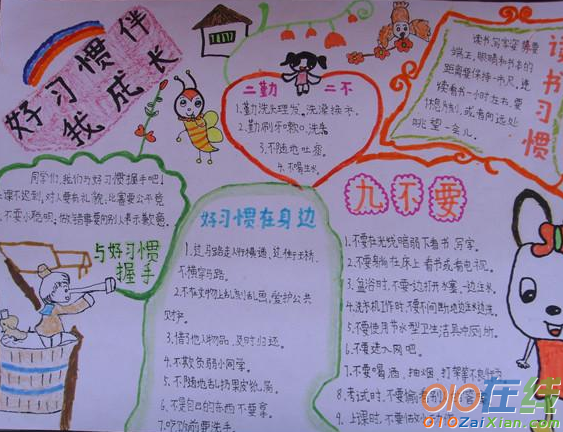 好习惯伴
我成长
二勤 二不
1.勤洗头理发、洗澡换衣
2.勤刷牙漱口、洗鼻
3.不随地吐痰
4.不喝生水
读书习惯
读书写字姿势要
端正,眼睛和书本的
距离要保持一市尺,连
续看书一小时左右要
休息,或者向远处
眺望一会儿。
同学们,我们与好习惯握手吧!
上课不迟到,对人要有礼貌,比赛要公平竞
不要小聪明。做错事要向别人表示歉意。
与好习惯
握手
好习惯在身边
1.过马路走人行横道、过街天桥、
不横穿马路。
2.不在文物上乱刻乱画,爱护公共
财产。
3.借了他人物品,及时归还。
4.不欺负弱小同学。
5.不随地乱扔果皮纸屑。
6.不是自己的东西不要拿。
7.吃饭前要洗手。
九不要
1.不要在光线暗弱下看书、写字。
2.不要躺在床上看书或看电视。
3.盥浴时,不要一边打水塞一边注水。
4.洗衣机工作时,不要不间断地边注水边洗。
5.不要使用节水型卫生洁具冲厕所。
6.不要进入网吧。
7.不要喝酒、抽烟、打架等不良行为
8.考试时,不要偷看别人答案
9.上课时,不要做小动作
010在线
010ZaiXian.com